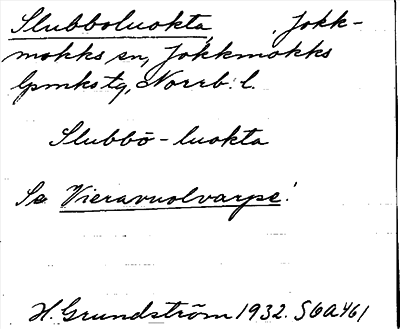 Slubboluokta, Jokk-
mokks sn, Jokkmokks
lpmkstg, Norrb. l.
Slubbō-luokta
Se Vieravuolvarpe!
H. Grundström 1932. S6A461